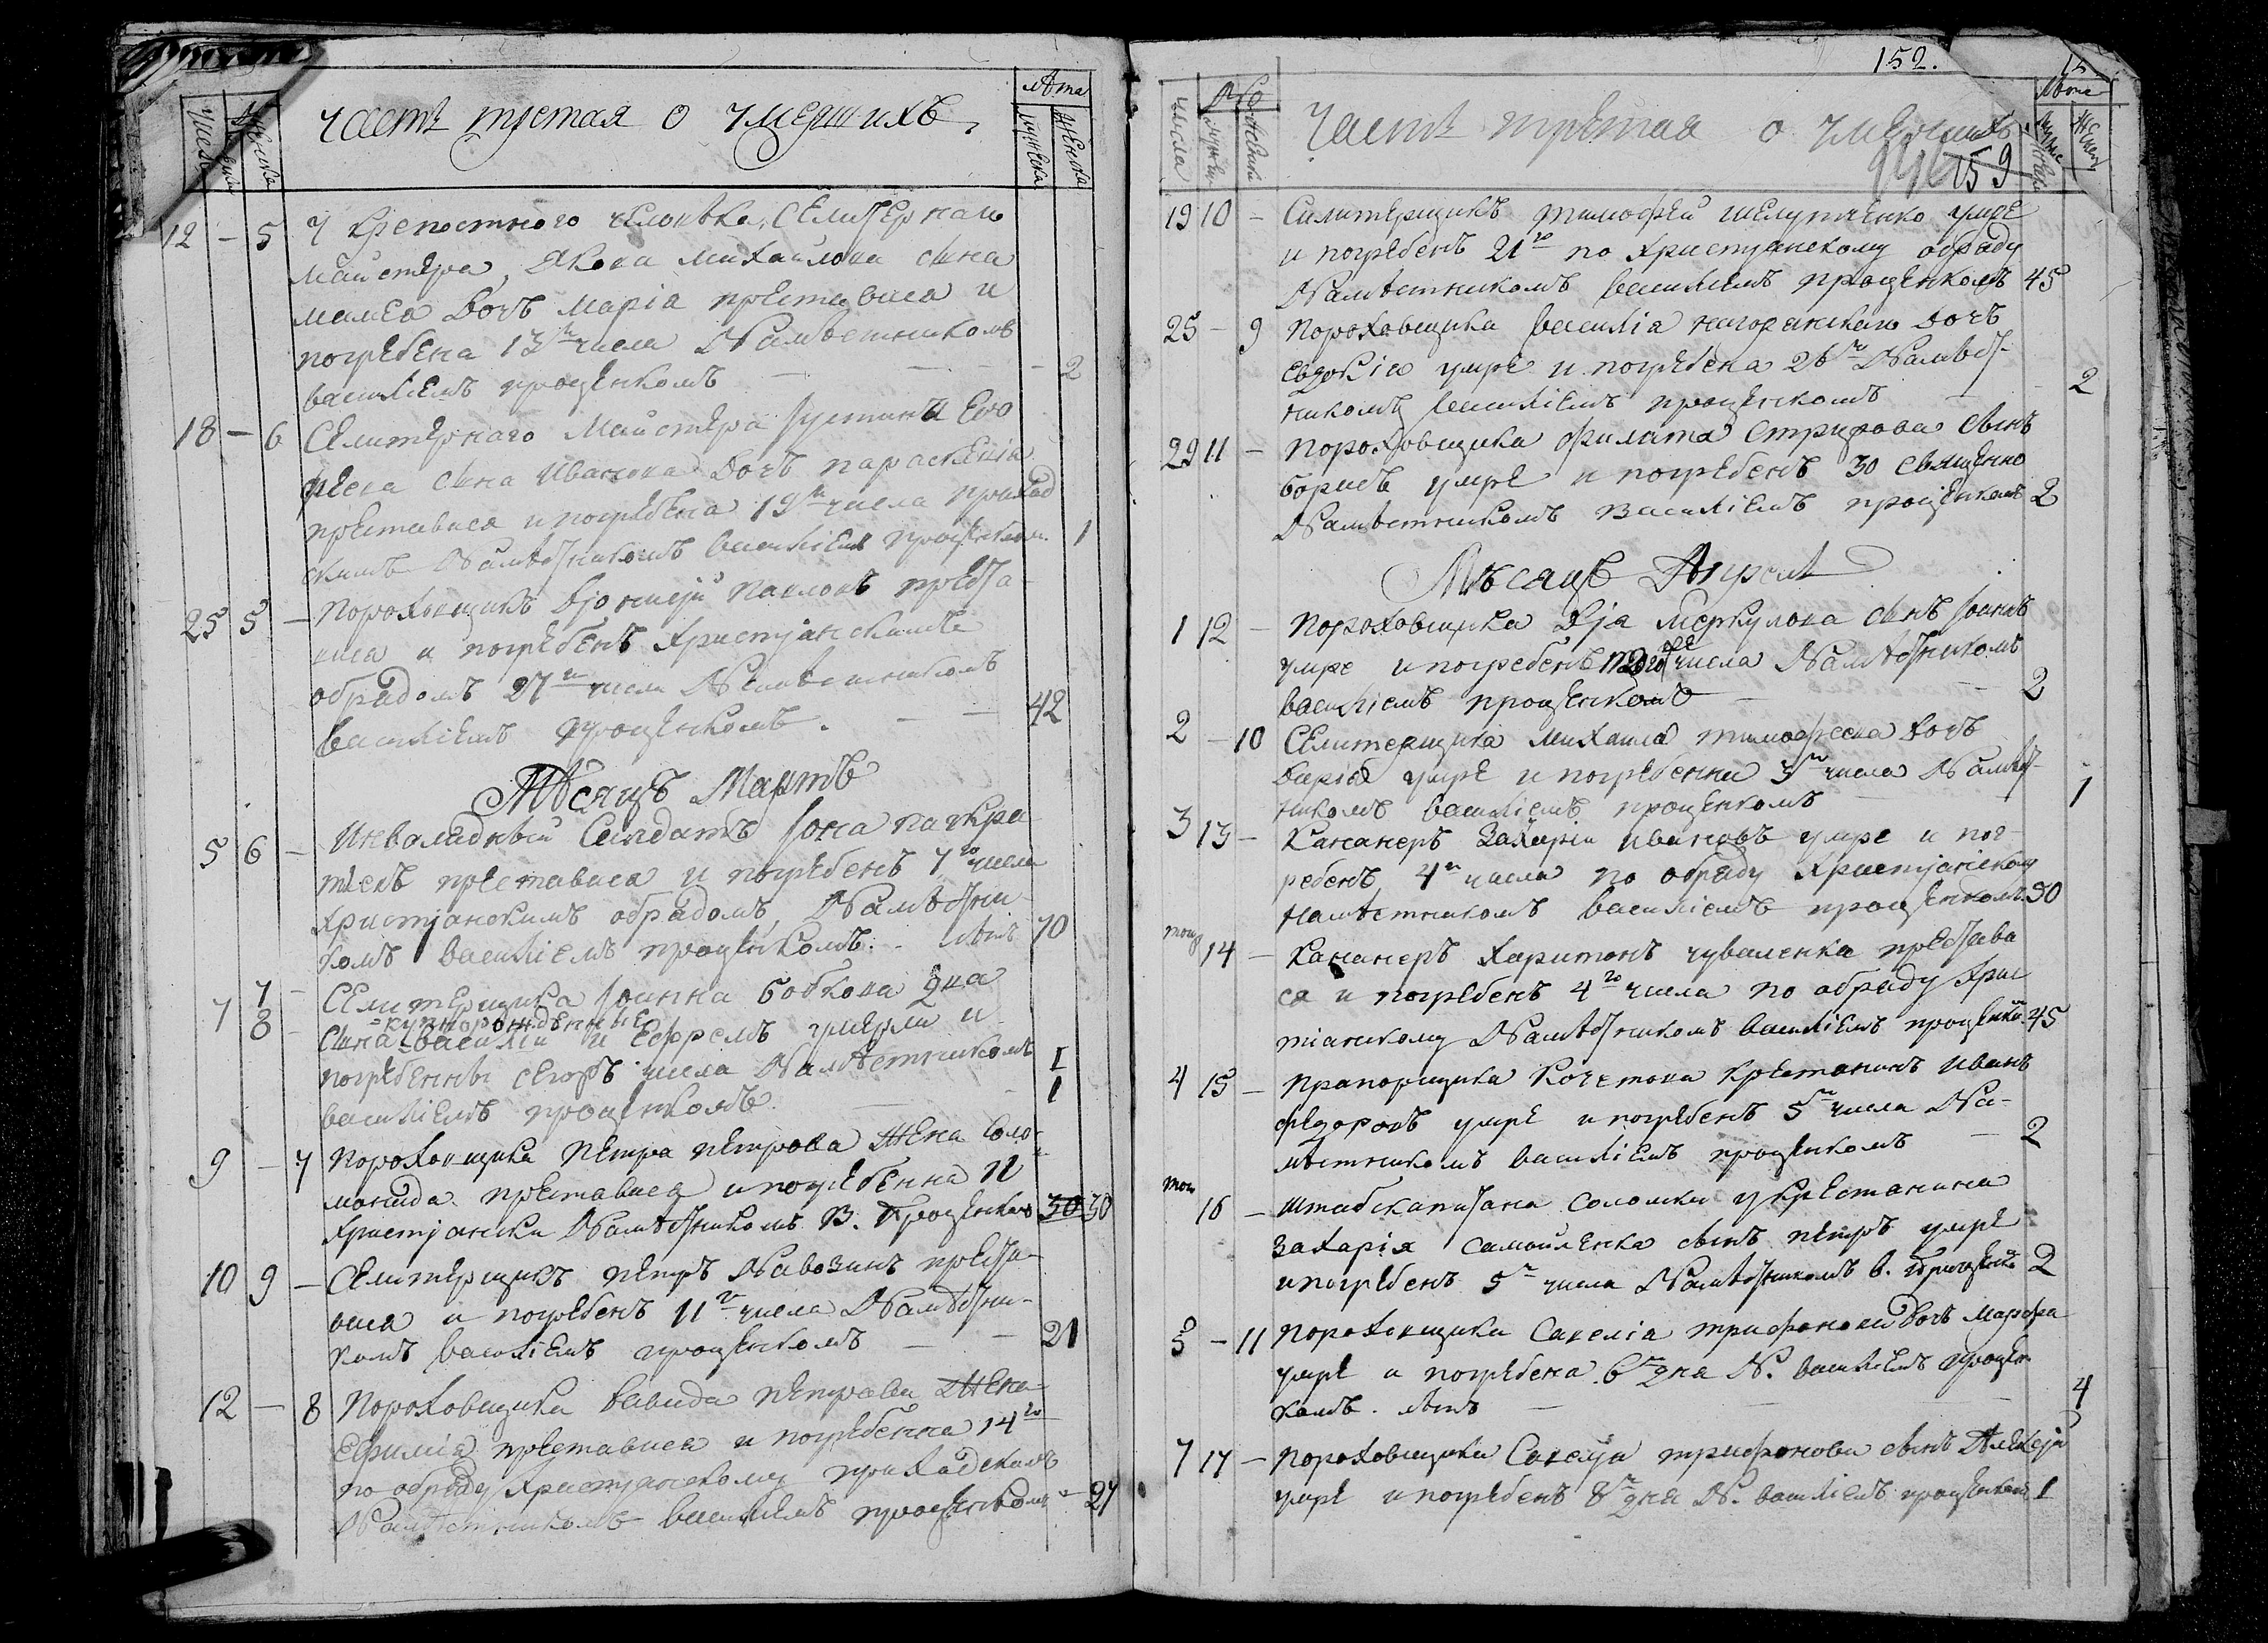 часть третая о умершихъ.
Лѣта
Числа
женска
мужеска
женска
12 – 5 У крепостного человѣка, Селитернаго
майстера, Якова Михайлова сына
дочь Марія преставися и
погребена 13го числа Намѣстникомъ
Василіемъ Проценкомъ – – – 2
18 – 6 Селитернаго Майстера Іустина
сына Иванова дочь Параскевія
преставися и погребена 19го числа приход
скимъ Намѣстникомъ Василіемъ Проценком. 1
25 5 – Пороховщикъ Павловъ преста
вися и погребенъ Христіанскимъ
обрадомъ 27го числа Намѣстникомъ
Василіемъ Проценкомъ. – – 42
Мѣсяцъ Мартъ
5 6 – Инвалидный Салдатъ Іона Панкра
тіевъ преставися и погребенъ 7го числа
Христіанскимъ обрадомъ, Намѣстни-
комъ Василіемъ Проценкомъ. – лѣтъ 70
7 7 – Селитерщика Іоанна Бобкова два
8 – сына Василій и Ефремъ умерли и
погребенны сегожъ числа Намѣстникомъ 1
Василіемъ Проценкомъ. – – 1
9 – 7 Пороховщика Петра Петрова жена Соло-
монида преставися и погребенна 11
Христіански Намѣстникомъ В. Проценкомъ 30 30
10 9 – Селитерщикъ Петръ Навозинъ преста-
вися и погребенъ 11го числа Намѣстни-
комъ Василіемъ Проценкомъ – – 21
12 – 8 Пороховщика Давида Петрова жена
Ефимія преставися и погребенна 14го
по обраду Христіанскому приходскимъ
Намѣстникомъ Василіемъ Проценкомъ – 27
152.
Часть третая о умершихъ
159
Лѣта
числа
19 10 – Силитерщикъ Тимофей Шелупченко умре
и погребенъ 21го по Христіанскому обраду
Намѣстникомъ Василіемъ Проценкомъ 45
25 – 9 Пороховщика Василіа Нагоранскаго дочь
Евдокіа умре и погребена 26го Намѣст-
никомъ Василіемъ Проценкомъ – – 2
29 11 – Пороховщика Филата Стрижова сынъ
Борисъ умре и погребенъ 30 священно
Намѣстникомъ Василіемъ Проценкомъ 2
Мѣсяцъ Апрель
1 12 – Пороховщика Меркулова сынъ Іоаннъ
умре и погребенъ числа Намѣстникомъ
Василіемъ Проценкомъ – – 2
2 – 10 Селитерщика Михаила Тимофеева дочь
Дарія умре и погребенна 3го числа Намѣст-
никомъ Василіемъ Проценкомъ – 1
3 13 – Кананеръ Захарій Ивановъ умре и пог-
ребенъ 4го числа по обраду Христіанскому
Намѣстникомъ Василіемъ Проценкомъ. 50
14 – Кананеръ Харитонъ Чуваленка престави
ся и погребенъ 4го числа по обраду Хри
тіанскому Намѣстникомъ Василіемъ Проценк. 45
4 15 – Прапорщика Кочетова Крестанинъ Иванъ
Федоровъ умре и погребенъ 5го числа На-
мѣстникомъ Василіемъ Проценкомъ – 2
16 – Штабскапитана Соломки у Крестанина
Захарія Самойленка сынъ Петръ умре
и погребенъ 5го числа Намѣстникомъ В. Проценк. 2
5 – 11 Пороховщика Савеліа Трифонова дочь Марфа
умре и погребена 6го дня Н. Василіемъ Процен
комъ. лѣтъ – – – 4
7 17 – Пороховщика Савелія Трифонова сынъ Алексій
умре и погребенъ 8го дня Н. Василіемъ Проценком 1